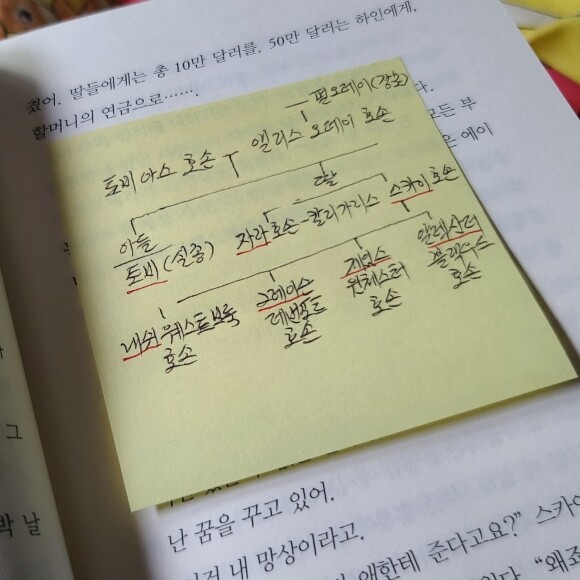 졌어. 딸들에게는 총 10만 달러를. 50만 달러는 하인에게.
할머니의 연금으로……
다.
모든 부
은 에이
토비아스 호손 앨리스 오데이 호손
아들 딸
토비 (실종) 자라 호손-칼리가리스 스카이 호손
내쉬 웨스트브룩 호손
그레이슨 대븐포트 호손
제임슨 윈체스터 호손
알렉산더 블랙우드 호손
그
박 날
난 꿈을 꾸고 있어.
내 망상이라고.
한테 준다고요?” 스카이
“왜죠